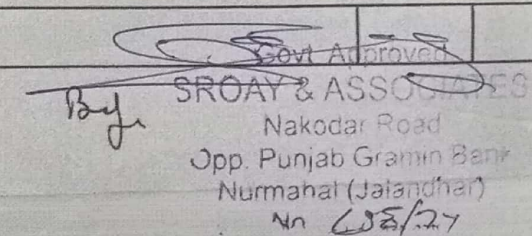 Govt Approved
By. SROAY & ASSOCIATES
Nakodar Road
Opp. Punjab Gramin Bank
Nurmahal (Jalandhar)